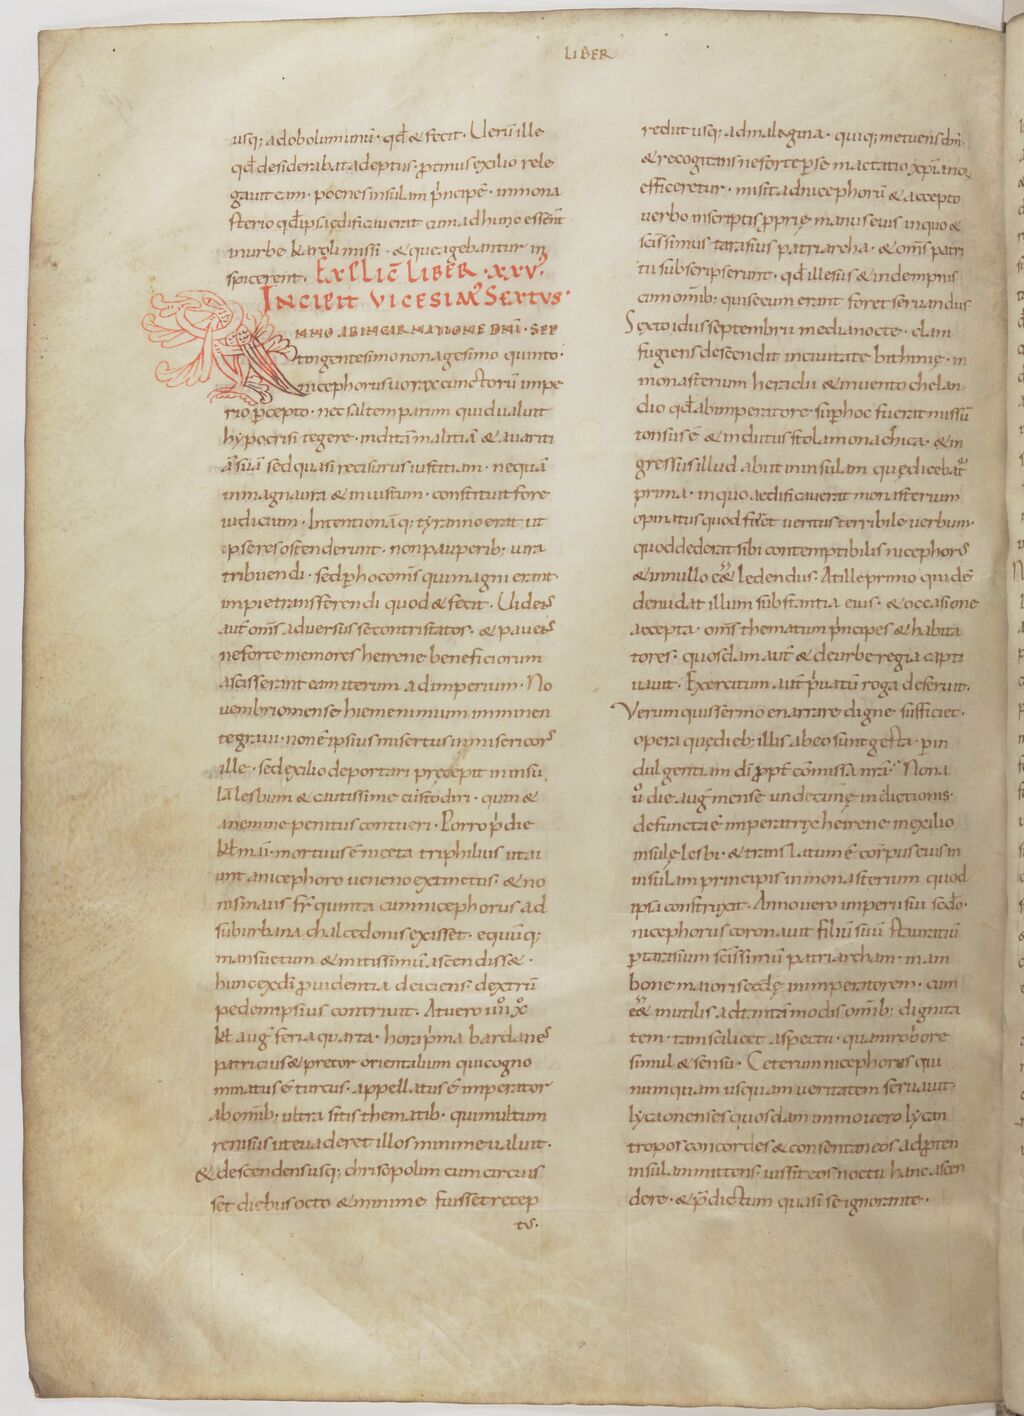 LIBER
usq; ad obolum unū· qđ & fecit· Uerū ille
qđ desiderabat adeptus· ꝓtinus exilio rele
gauit eam· poenes insulam p̄ncipē· in mona
sterio qđ ipsa ędificauerat cum adhuc essent
in urbe karoli missi· & que agebantur in
spicerent· EXPLIC̄ LIBER ·XXV·
INCIPIT VICESIMꝰ SEXTVS·
ANNO AB INCARNATIONE DNI· SEP
tingentesimo nonagesimo quinto·
nicephorus uorax cunctorū impe
rio p̄cepto· nec saltem parum quid ualuit
hypocrisi tegere· inditam malitiā & auariti
ā suā sed quasi recisurus iustitiam· nequā
in magnaura & iniustum· constituit fore
iudicium· Intentio nāq; tyranno erat ut
ipse res ostenderunt· non pauperib; iura
tribuendi· sed p̱ hoc om̄s qui magni erant·
impie transferendi quod & fecit· Uidenꝰ
aut̄ om̄s aduersus se contristatos· & pauenꝰ
ne forte memores heirene beneficiorum
ascisserant eam iterum ad imperium· No
uembrio mense hieme nimium imminen
te graui· non ē ipsius misertus inmisericorꝰ
ille· sed exilio deportari pręcepit in insu
lā lesbum & cautissime custodiri· quin &
a nemine penitus contueri· Porro p̄die
kł mai· mortuus ē niceta triphilius ut ai
unt a nicephoro ueneno extinctus· & no
nis maius fr̄ quinta cum nicephorus ad
suburbana chalcedonis exisset· equūq;
mansuetum & mitissimū ascendiss&·
hunc ex dī ꝓuidentia deiciens· dextrū
pedem ipsius contriuit· At uero
kł aug feria quarta· hora p̄ma bardaneꝰ
patricius & pretor orientalium qui cogno
minatus ē turcus· appellatus ē imperator
ab omīb; ultra sitis thematib· qui multum
renisus ut euaderet illos minime ualuit·
& descendens usq; chrisopolim cum circuis
set diebus octo & minime fuisset recep
tꝰ·
rediit usq; ad malagina· quiq; metuens dm̄·
& recogitans ne forte p̱ se mactatio xp̄ianoꝝ
efficeretur· misit ad nicephorū & accepto
uerbo in scriptis p̱prię manus eius in quo &
sc̄issimus tarasius patriarcha· & om̄s patri
tii subscripserunt· qđ illesus & indempnis
cum omīb; qui secum erant foret seruandus·
Sexto idus septembrii media nocte· clam
fugiens descendit in ciuitate bithinię· in
monasterium heraclii & inuento chelan
dio qđ ab imperatore sup̱ hoc fuerat missū
tonsus ē & indutus stola monachica· & in
gressus illud abiit in insulam quę dicebat̄
prima· in quo aedificauerat monasterium
opinatus quod fieret ueritus terribile uerbum·
quod dederat sibi contemptibilis nicephorꝰ
& in nullo ēē ledendus· At ille primo quidē
denudat illum substantia eius· & occasione
accepta· om̄s thematum p̄ncipes & habita
tores· quosdam aut̄ & de urbe regia capti
uauit· Exercitum aut̄ p̄uatū roga deseruit·
Verum quis sermo enarrare digne sufficiet·
opera quę dieb; illis ab eo sunt gesta· p̱ in
dulgentiam dī ꝓpt̄ com̄issa nrā· Nona
u̾ die aug mense undecimę indictionis·
defuncta ē imperatrix heirene in exilio
insulę lesbi· & translatum ē corpus eius in
insulam principis in monasterium quod
ipsa construxit· Anno uero imperii sui scđo·
nicephorus coronauit filiū suū stauratiū
p̱ tarasium sc̄issimū patriarcham· in am
bone maioris ecclę in imperatorem· cum
ēē& inutilis ad tanta modis omīb; dignita
tem· tam scilicet aspectu· quam robore
simul & sensu· Ceterum nicephorus qui
numquam usquam ueritatem seruauit·
lycaonenses quosdam immo uero lycan
tropos concordes & consentaneos ad p̱ten
insulam mittens· iussit eos noctu hanc ascen
dere· & p̄dictum quasi se ignorante·